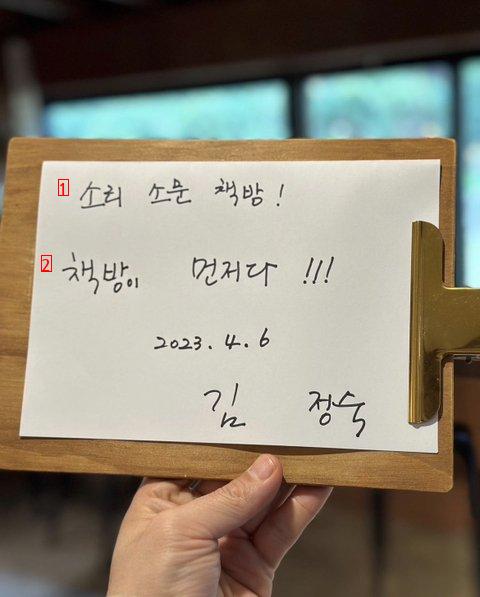 1 소리 소문 책방!
2 책방이 먼저다 !!!
2023. 4. 6
김 정숙